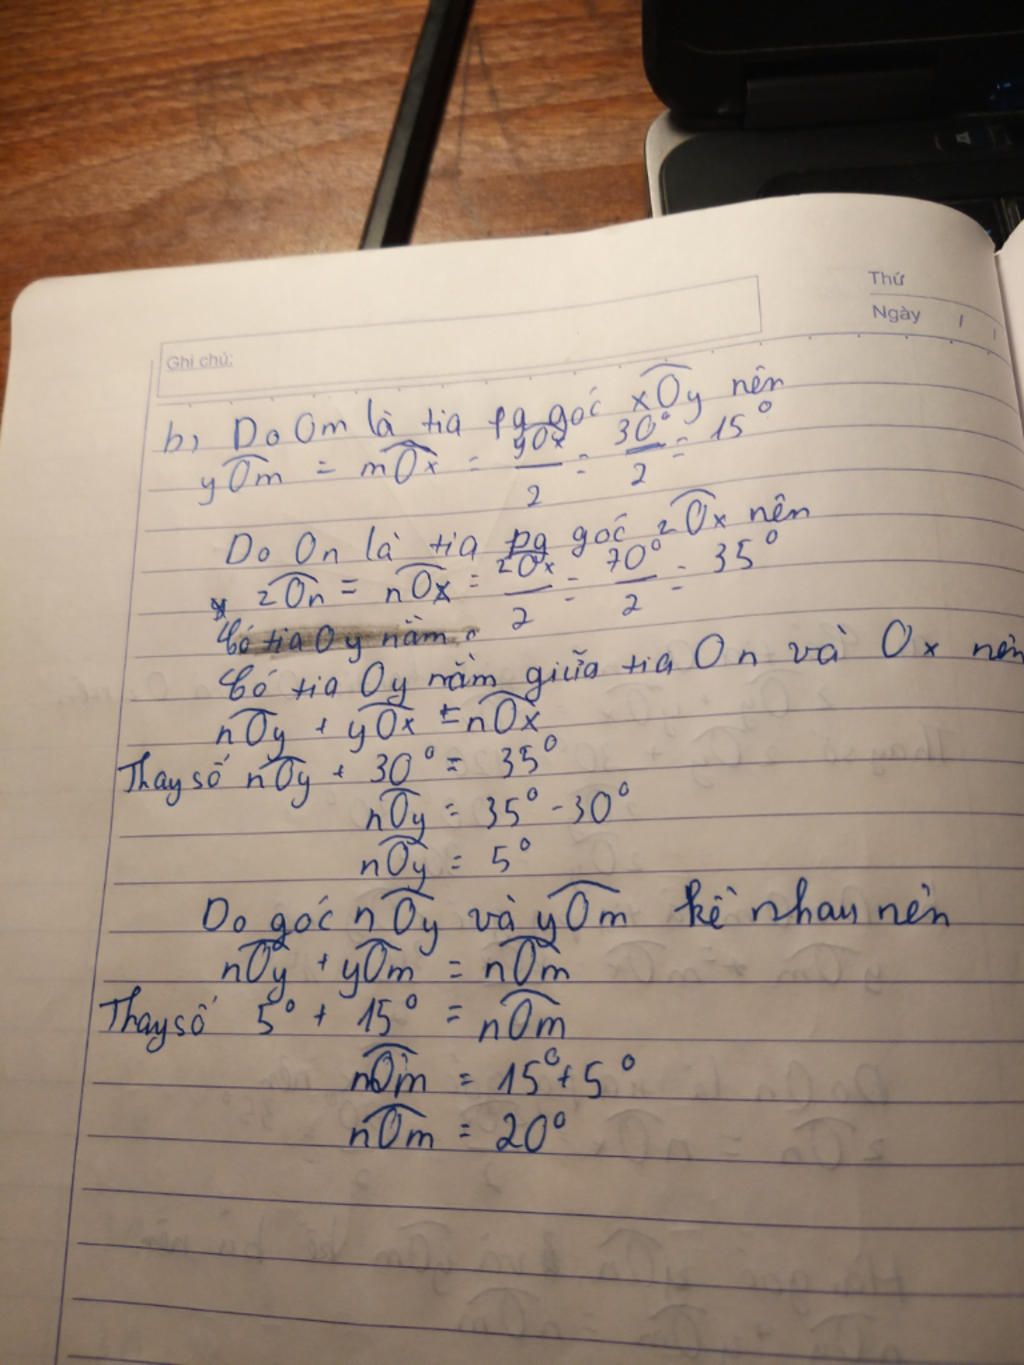 Thứ
Ngày / /
Ghi chú:
b, Do Om là tia pg góc xOy nên
yOm = mOx = yOx/2 = 30°/2 = 15°
Do On là tia pg góc zOx nên
zOn = nOx = zOx/2 = 70°/2 = 35°
Có tia Oy nằm
Có tia Oy nằm giữa tia On và Ox nên
nOy + yOx = nOx
Thay số nOy + 30° = 35°
nOy = 35° - 30°
nOy = 5°
Do góc nOy và yOm kề nhau nên
nOy + yOm = nOm
Thay số 5° + 15° = nOm
nOm = 15° + 5°
nOm = 20°